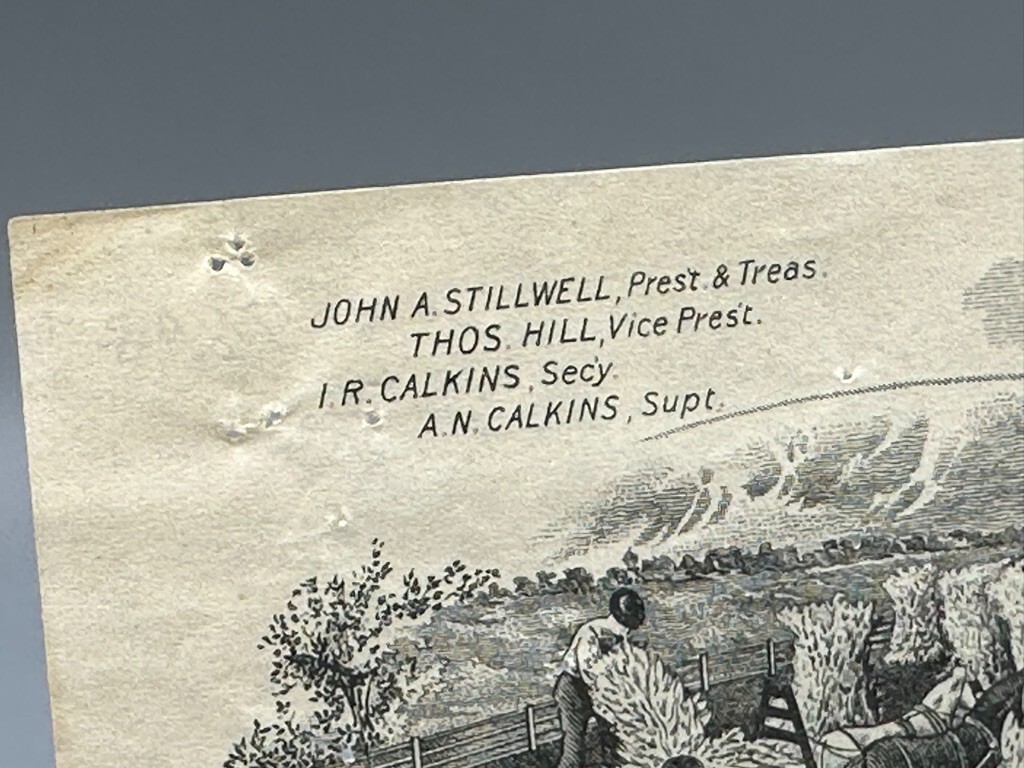 JOHN A. STILLWELL, Pres't. & Treas.
THOS. HILL, Vice Pres't.
I. R. CALKINS, Sec'y.
A. N. CALKINS, Supt.